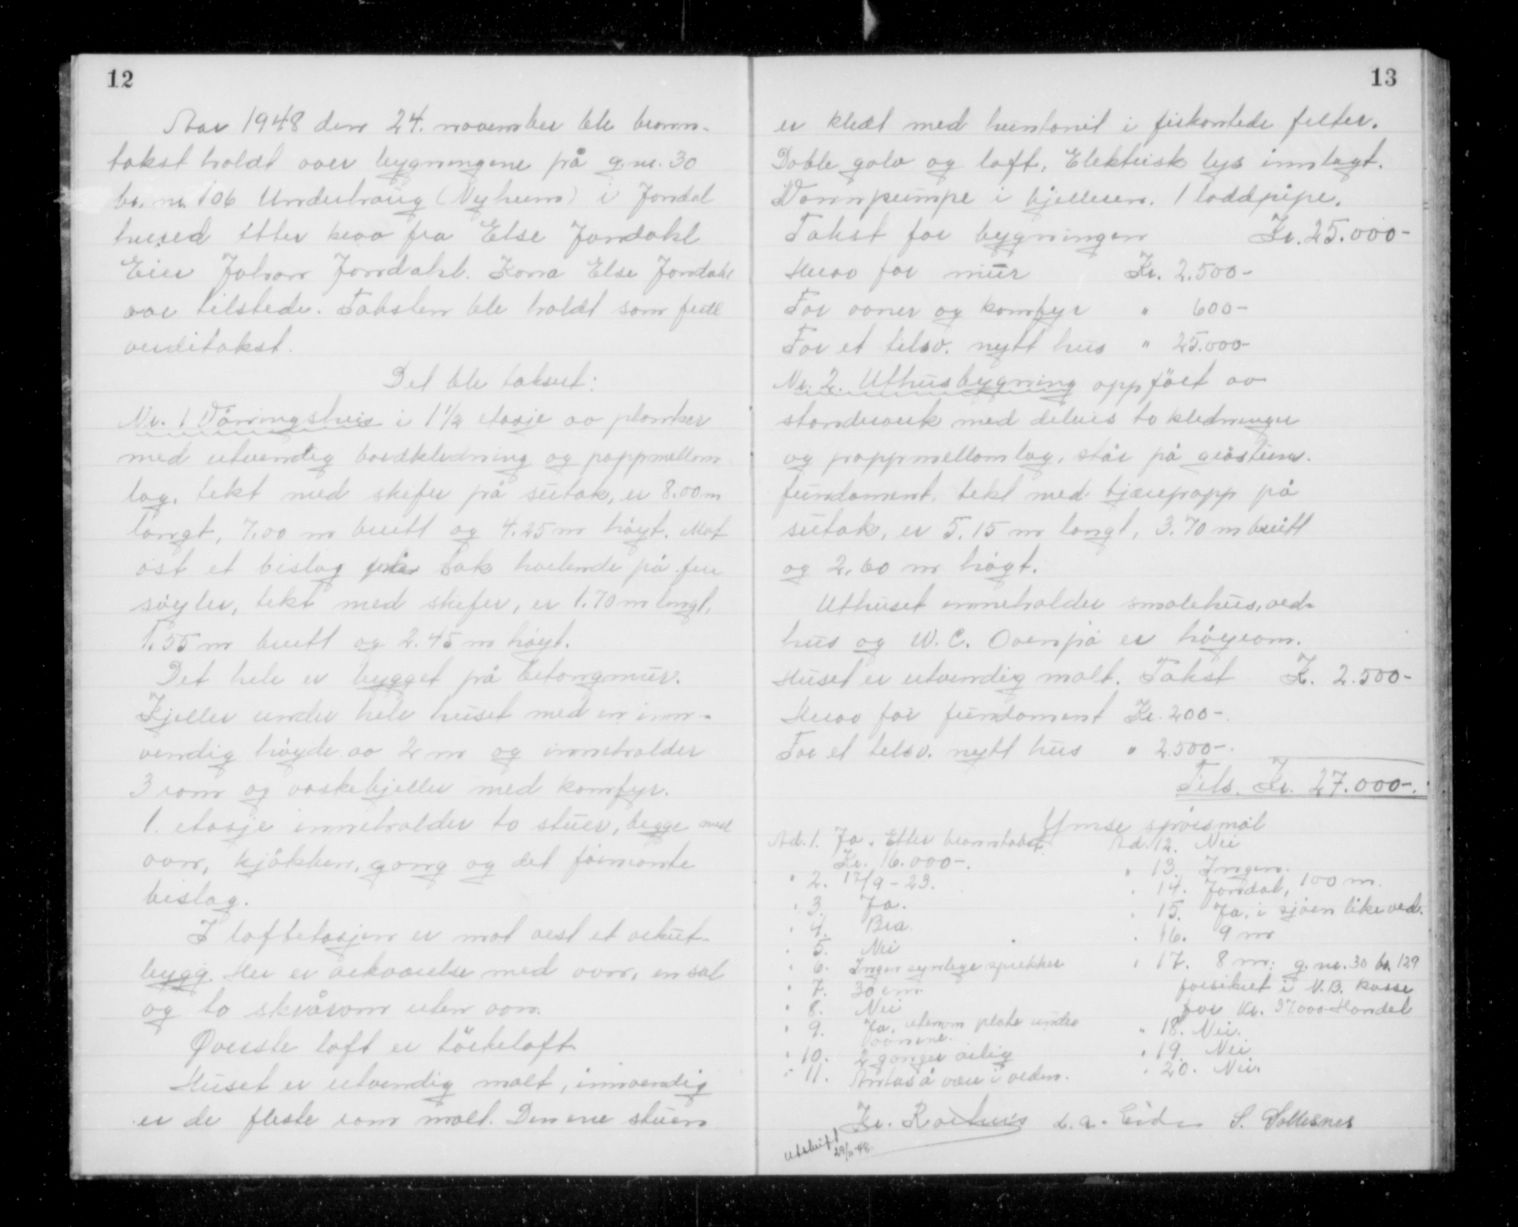 12
Aar 1948 den 24. november ble brann-
takst holdt over bygningene på g.nr. 30
br. nr. 106 Underhaug (Nyheim) i Jondal
herred etter krav fra Else Jondahl
Eier Johan Jondahl. Kona Else Jondahl
var tilstede. Taksten ble holdt som full
verditakst.
Det ble taksert:
Nr. 1 Våningshus i 1 1/2 etasje av planker
med utvendig bordkledning og pappmellom
lag, tekt med skifer på sutak, er 8.00 m
langt, 7.00 m breitt og 4.25 m høgt. Mot
ost et bislag tak hvilende på fire
søyler, tekt med skifer, er 1.70 m langt,
1.55 m breitt og 2.45 m høgt.
Det hele er bygget på betongmur.
Kjeller under hele huset med en inn-
vendig høyde av 2 m og inneholder
3 rom og vaskekjeller med komfyr.
1. etasje inneholder to stuer, begge med
ovn, kjøkken, gang og det førnevnte
beslag.
I loftetasjen er mot vest et arkut-
bygg. Her er arkværelse med ovn, en sal
og to skråvom uten ovn.
Øverste loft er tørkeloft.
Huset er utvendig malt, innvendig
er de fleste rom malt. Den ene stuen
13
er kledt med huntonit i firkantede felter.
Doble golv og loft. Elektrisk lys innlagt.
Vannpumpe i kjelleren. 1 loddpipe.
Takst for bygningen Kr. 25.000-
Herav for mur Kr. 2.500-
For ovner og komfyr " 600-
For et tilsv. nytt hus " 25.000-
Nr. 2. Uthusbygning oppført av
standverk med delvis to kledninger
og pappmellomlag, står på gråstein.
fundament, tekt med tjærepapp på
sutak, er 5.15 m langt, 3.70 m breitt
og 2.60 m høgt.
Uthuset inneholder smalehus, ved-
hus og W.C. Ovenpå er høyrom.
Huset er utvendig malt. Takst K. 2.500-
Herav for fundament Kr. 200-.
For et tilsv. nytt hus " 2500-.
Tils. Kr. 27.000-.
Ymse spørsmål
Ad. 1. Ja. Etter branntakst
Kr. 16.000-.
" 2. 12/9-23.
" 3. Ja.
" 4. Bra.
" 5. Nei
" 6. Ingen synlige sprekker
" 7. 30 cm
" 8. Nei
" 9. Ja, utenom plate under
ovnene.
" 10. 2 ganger årlig
" 11. Antas å være i orden.
Ad. 12. Nei
" 13. Ingen.
" 14. Jondal, 100 m.
" 15. Ja, i sjøen like ved.
" 16. 9 m
" 17. 8 m: g.nr. 30 br. 129
forsikret i N.B. kasse
for Kr. 37.000- Handel
" 18. Nei.
" 19. Nei
" 20. Nei.
Kr. L. A. Eide S. Sollesnes
Utskrift
29/11 48